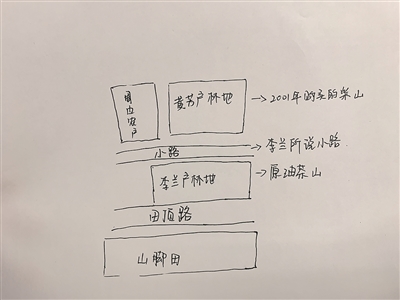 农户
黄芳户林地
→2001年购买的柴山
小路
→李兰所说小路
李兰户林地
→原油茶山
田顶路
山脚田